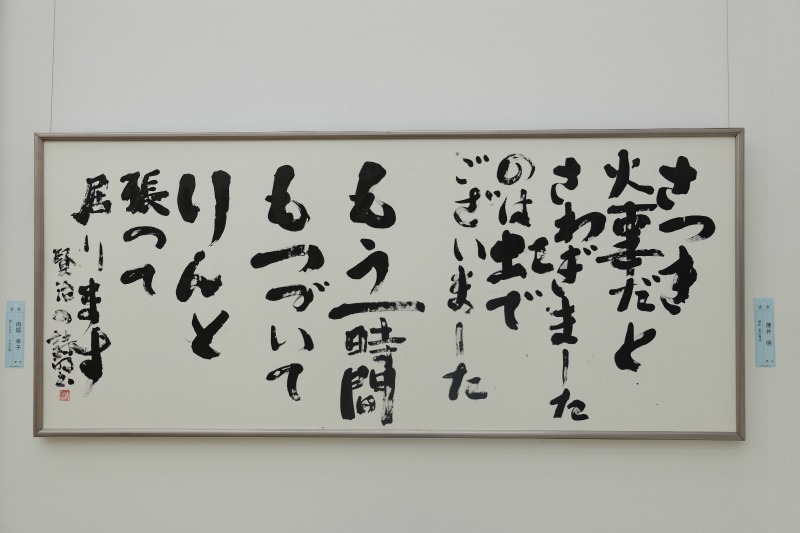 さつき
火事だと
さわぎました
のは虹で
ございました
もう一時間
もつづいて
りんと
張つて
居ります
賢治の詩